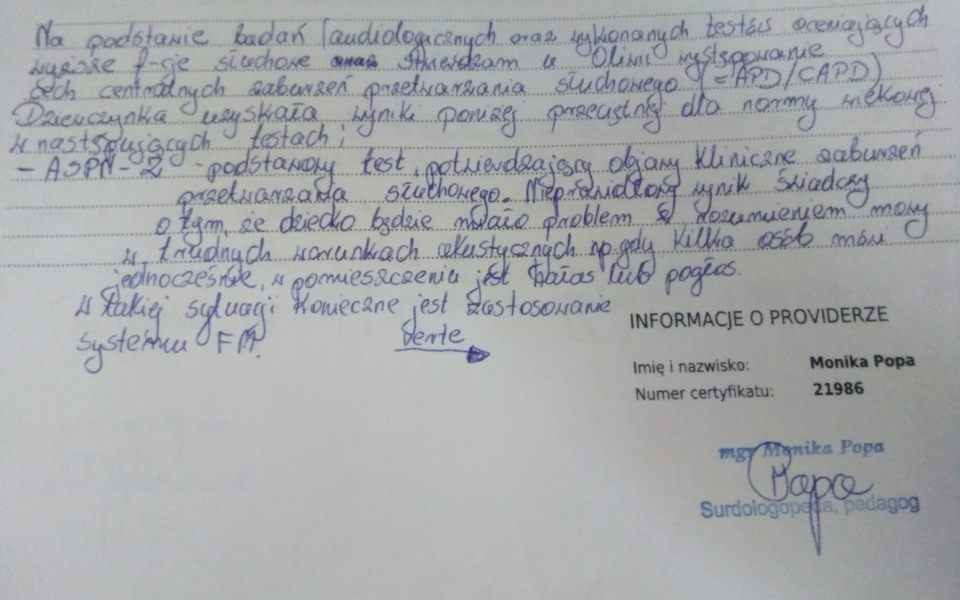 Na podstawie badań audiologicznych oraz wykonanych testów oceniających
wyższe f-cje słuchowe stwierdzam u Oliwii występowanie
cech centralnych zaburzeń przetwarzania słuchowego (=APD/CAPD)
Dziewczynka uzyskała wyniki poniżej przeciętnej dla normy wiekowej
w następujących testach:
- ASPN-2 - podstawowy test, potwierdzający objawy kliniczne zaburzeń
przetwarzania słuchowego. Nieprawidłowy wynik świadczy
o tym, że dziecko będzie miało problem z rozumieniem mowy
w trudnych warunkach akustycznych np. gdy kilka osób mówi
jednocześnie, w pomieszczeniu jest hałas lub pogłos.
W takiej sytuacji konieczne jest zastosowanie
systemu FM.
verte
INFORMACJE O PROVIDERZE
Imię i nazwisko: Monika Popa
Numer certyfikatu: 21986
mgr Monika Popa
Popa
Surdologopeda, pedagog